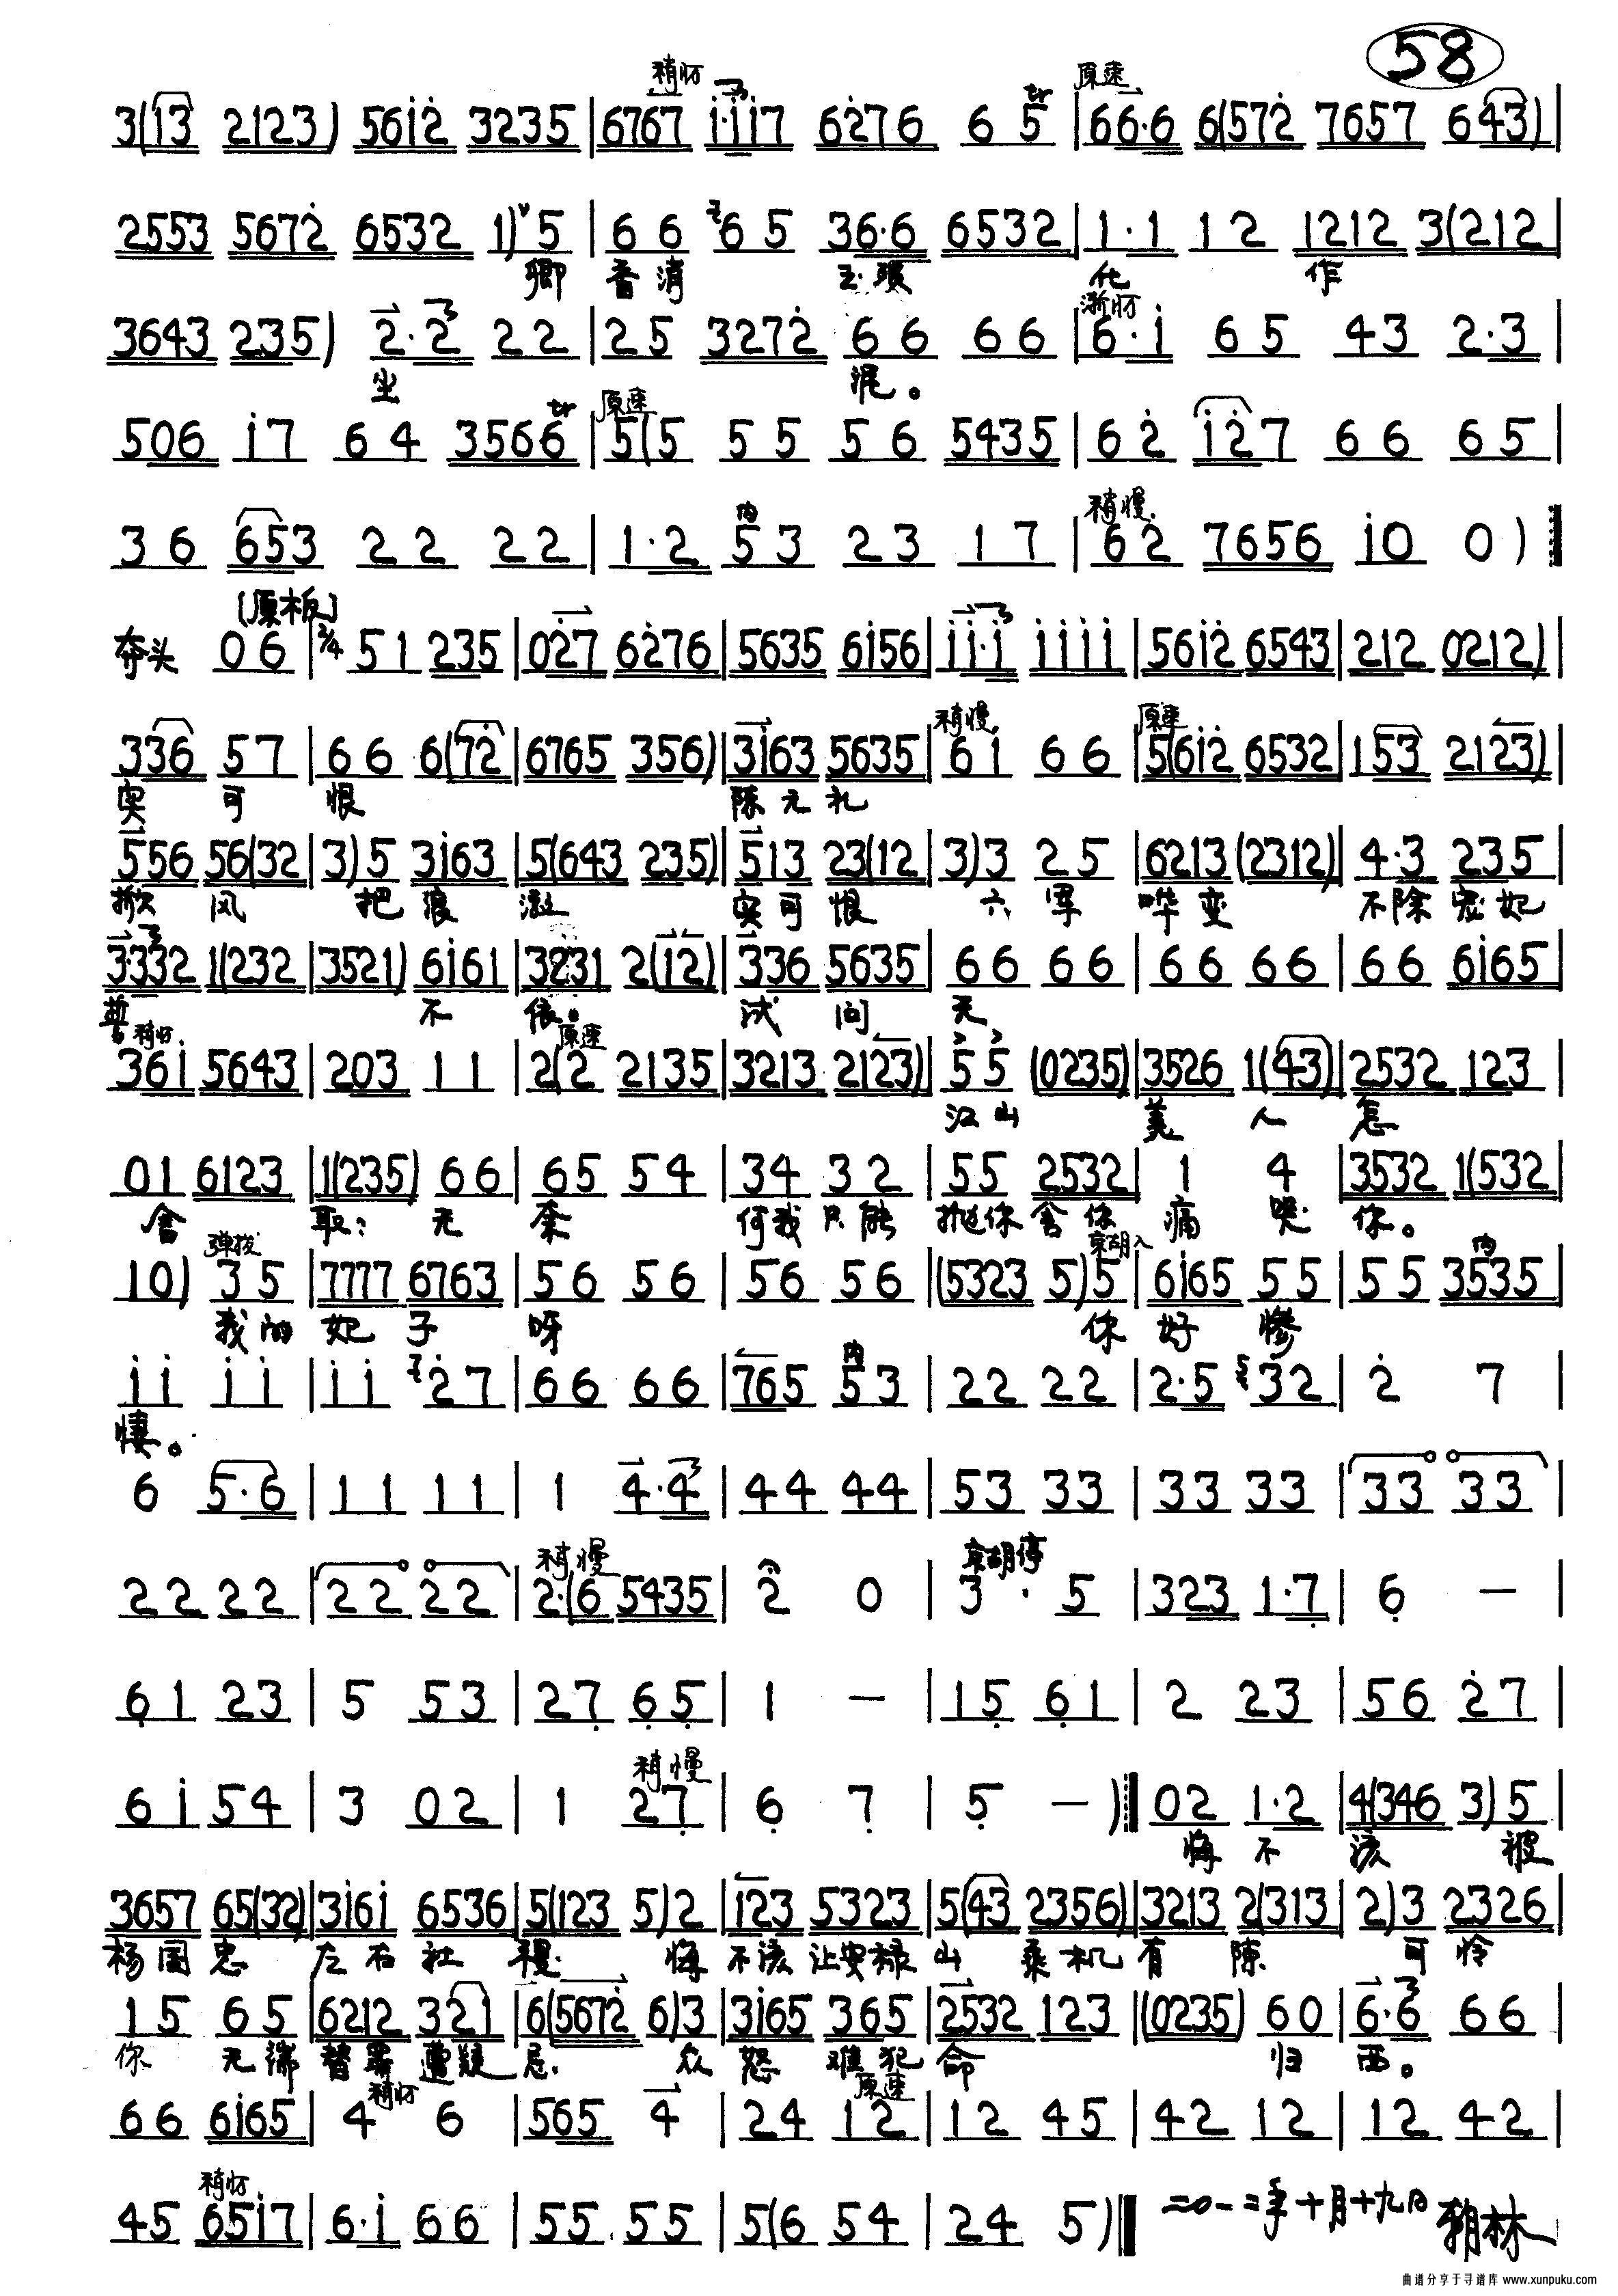 58
稍快 原速
3(13 2123) 561̇2̇ 3235 | 6767 1̇·1̇1̇7 62̇76 6 5 tr | 66·6 6(572̇ 7657 643) |
2553 5672̇ 6532 1)5 | 66 65 36·6 6532 | 1·1 12 1212 3(212 |
卿 香消 玉殒 化 作
渐快
3643 235) 2·2 22 | 25 3272̇ 66 66 | 6·1̇ 65 43 2·3 |
尘 泥。
原速
506 1̇7 64 3566 tr | 5(5 55 56 5435 | 62̇ 1̇2̇7 66 65 |
内 稍慢
36 653 22 22 | 1·2 53 23 17 | 62̇ 7656 1̇0 0)
[原板]
夺头 06 | 2/4 51 235 | 02̇7 62̇76 | 5635 61̇56 | 1̇1̇·1̇ 1̇1̇1̇1̇ | 561̇2̇ 6543 | 212 0212) |
稍慢 原速
336 57 | 66 6(72̇ | 6765 356) | 31̇63 5635 | 61̇ 66 | 5(61̇2̇ 6532 | 153 2123) |
实 可 恨 陈元礼
556 56(32 | 3)5 31̇63 | 5(643 235) | 513 23(12 | 3)3 25 | 6213 (2312) | 4·3 235 |
掀 风 把浪 激 实可恨 六军 哗变 不除宠妃
3·332 1(232 | 3521) 61̇61 | 3231 2(12) | 336 5635 | 66 66 | 66 66 | 66 61̇65 |
誓 不 依。 试 问 天
稍快 原速
361̇ 5643 | 203 11 | 2(2 2135 | 3213 2123) | 55 (0235) | 3526 1(43) | 2532 123 |
江山 美 人 怎
01 6123 | 1(235) 66 | 65 54 | 34 32 | 55 2532 | 1 4 | 3532 1(532 |
舍 取; 无 奈 何我只能 抛你舍你 痛 哭 你。
弹拨 京胡入 内
10) 35 | 7777 6763 | 56 56 | 56 56 | (5323 5)5 | 61̇65 55 | 55 3535 |
我的 妃 子 呀 你 好 惨
内
1̇1̇ 1̇1̇ | 1̇1̇ 2̇7 | 66 66 | 765 53 | 22 22 | 2·5 32 | 2̇ 7 |
悽。
6 5·6 | 11 11 | 1 4·4 | 44 44 | 53 33 | 33 33 | 33 33 |
稍慢 京胡停
22 22 | 22 22 | 2·(6 5435 | 2 0 | 3· 5 | 323 1·7̣ | 6̣ — |
6̣1 23 | 5 53 | 27̣ 6̣5̣ | 1 — | 15̣ 6̣1 | 2 23 | 56 2̇7 |
稍慢
61̇ 54 | 3 02 | 1 27̣ | 6̣ 7̣ | 5̣ — ) 02 1·2 | 4(346 3)5 |
悔 不 该 被
3657 65(32) | 31̇61̇ 6536 | 5(123 5)2 | 123 5323 | 5(43 2356) | 3213 2(313 | 2)3 2326 |
杨国忠 左右社稷 悔 不该让安禄山 乘机有隙 可怜
15 65 | 6212 321 | 6(5672̇ 6)3 | 31̇65 365 | 2532 123 | (0235) 60 | 6·6 66 |
你 无端 替罪遭疑忌 众 怒 难犯 命 归 西。
稍快 原速
66 61̇65 | 4 6 | 565 4 | 24 12 | 12 45 | 42 12 | 12 42 |
稍快
45 651̇7 | 6·1̇ 66 | 55 55 | 5(6 54 | 24 5) 二〇一二年十月十九日 翱林
曲谱分享于寻谱库 www.xunpuku.com